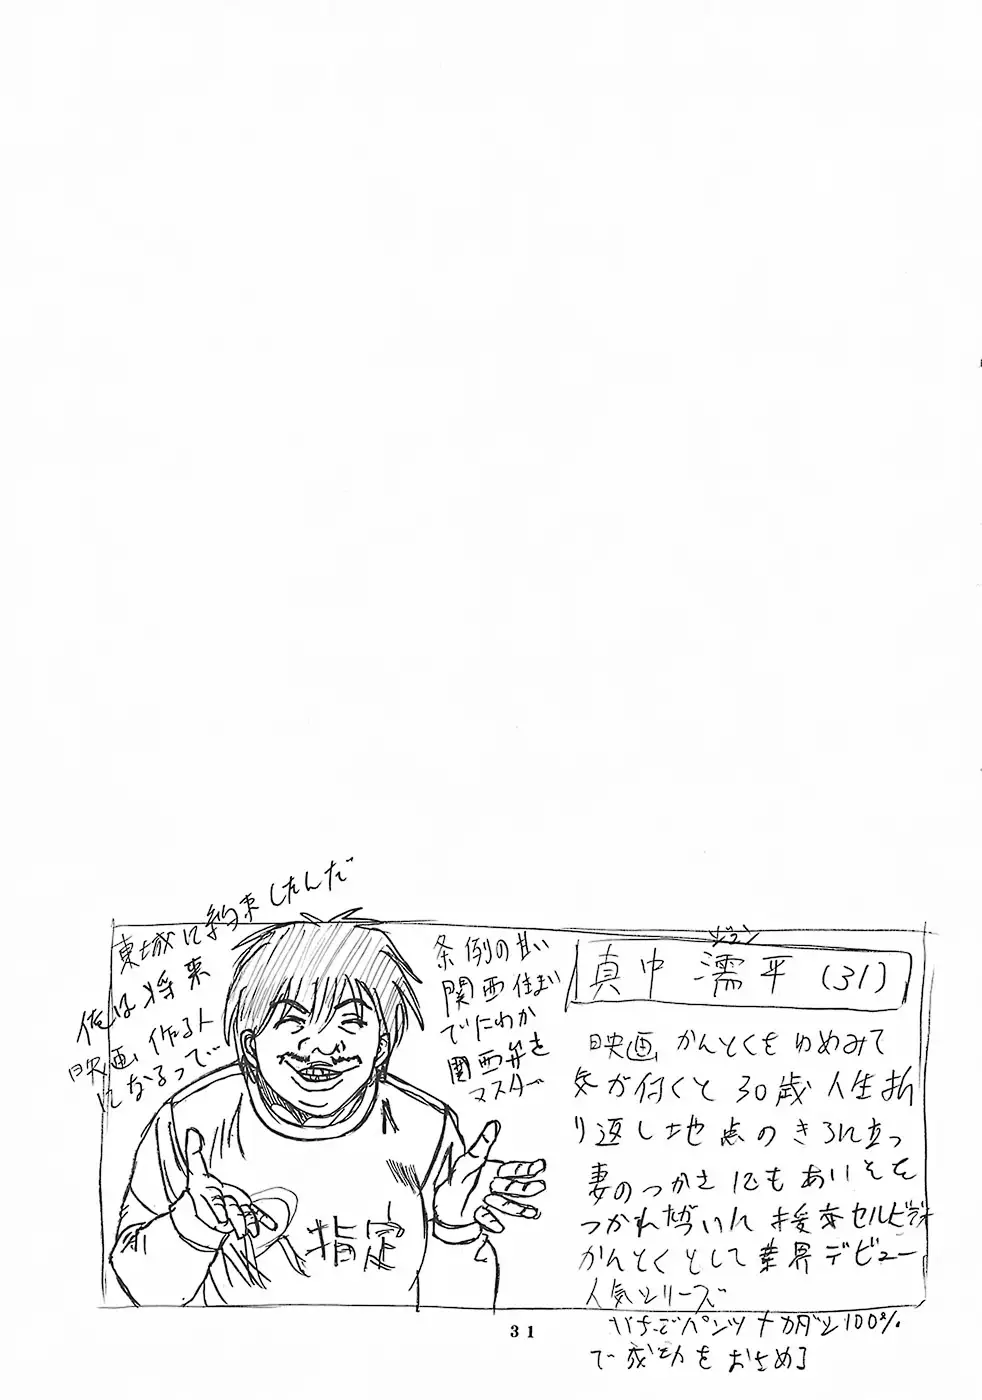 東城に約束したんだ
俺は将来
映画作る人
になるって
条例の甘い
関西住まい
でにわか
関西弁を
マスター
ジュン
真中 濡平 (31)
映画かんとくをゆめみて
気が付くと30歳人生折
り返し地点のきろに立つ
妻のつかさにもあいそを
つかれ
かんとくとして業界デビュー
人気シリーズ
いちごパンツ 100%
で成功をおさめ
指定
31